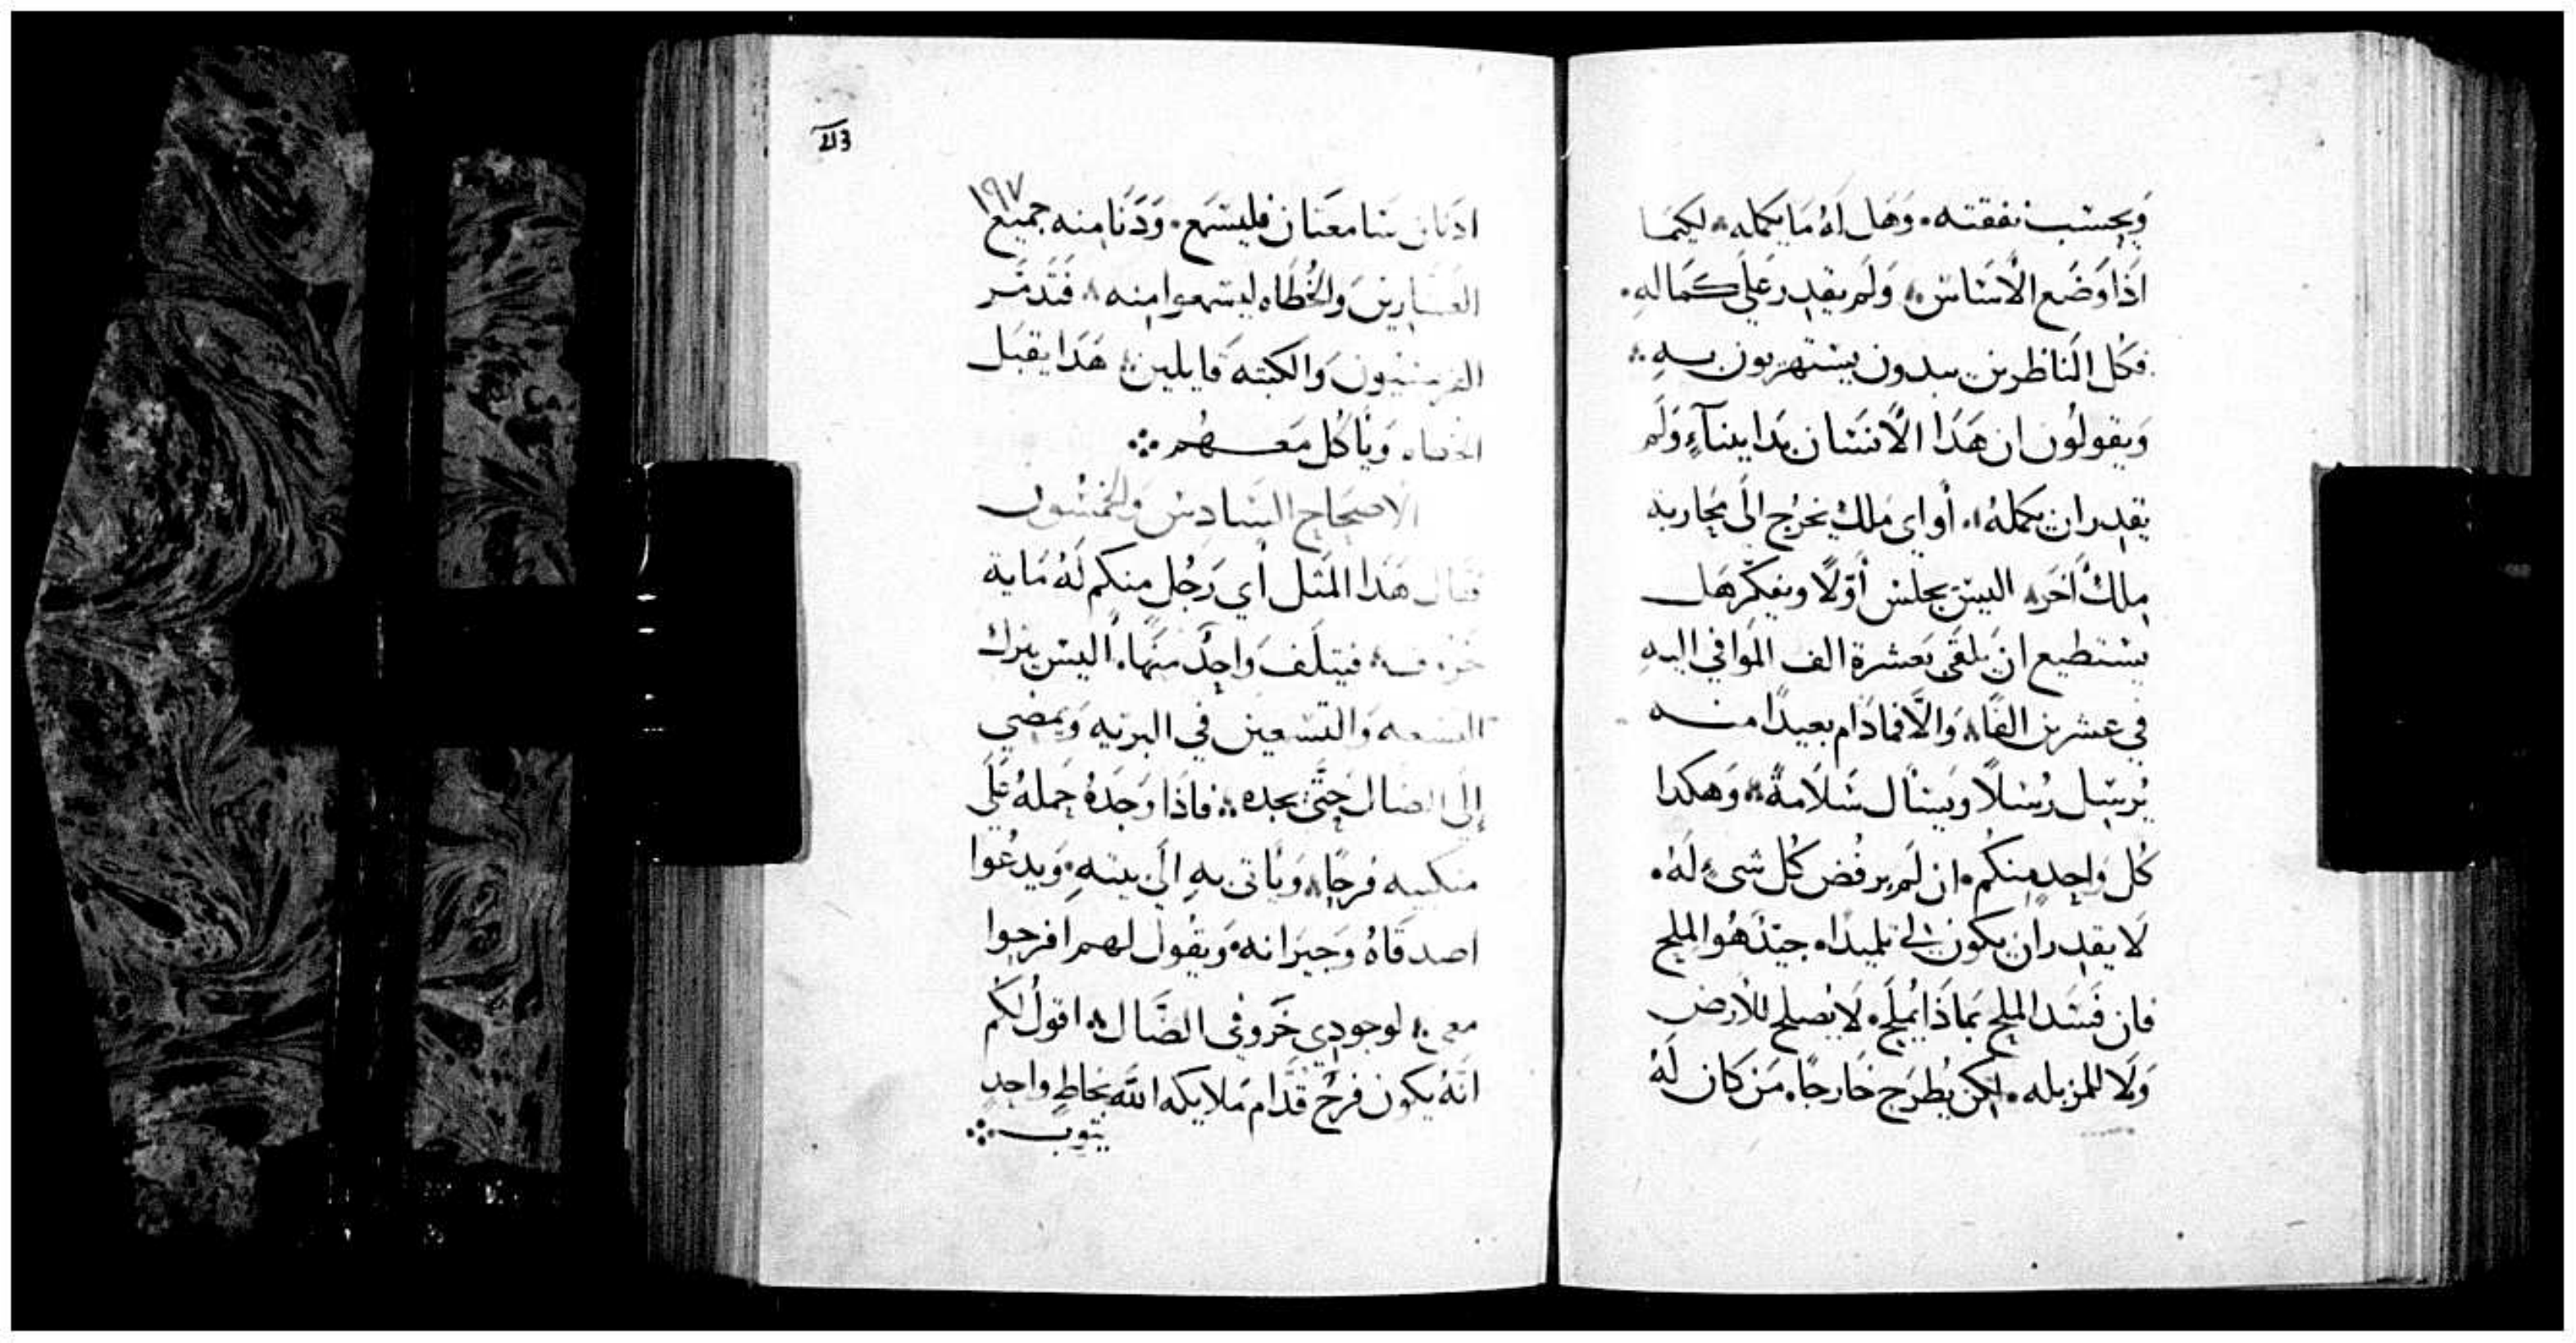 وَيحسّب نفقته. وَهَل لهُ مَا يكمله. ليكمَا
اذَا وَضَع الاسَاس، وَلَم يقدر عَلى كمَالهِ.
فكُل النَاظرين يبدون يستهزيون بهِ
وَيقولون ان هَذَا الانسَان بدا ببنآءٍ وَلَم
يقدر ان يكملهُ. أو اي مَلك يخرُج الى مُحاربة
مِلكٌ اخَر، اليسَ يجلس أوّلاً ويفكّر هَل
يستطيع ان يَلقى بعَشرة الف المُوافي اليهِ
في عشرين الفًا، وَالَّا فمادَام بعيدًا منه
يُرسِل رُسلاً وَيسْأل سَلاَمةً. وَهكدا
كُل وَاحِد مِنكُم. ان لَم يرفُض كُل شىءٍ لَهُ.
لا يقدر ان يكون لي تلميدًا. جيّدٌ هُوَ الملح
فان فسَد الملح بمَاذَا يُملّح. لاَ يصلح للأرض
وَلَا للمزبله. لكن يُطرَح خَارجًا. مَن كَان لَهُ
213
١٩٧
ادنَان سَامعَتان فليسمَع. وَدَنَا منه جميع
العشارين وَالخُطَاه ليسمعوا منه. فتَدمّر
الفريسيون وَالكتبه قايلين هَدا يقبَل
الخطاه وَيأكُل مَعهُم
الاصحَاح السَادس وَالخمسُون
فقال هَذا المثَل أي رَجُل منكم لَهُ مَاية
خروف، فيتلف وَاحِدٌ منهَا. أليسَ يترك
التسعه وَالتسعين في البريه وَيمضي
إلى الضال حتّى يجده. فاذَا وَجَدهُ حَملهُ عَلَى
منكبيه فرحًا. وَيأتى بهِ الى بيتهِ. وَيدعُوا
اصدقاهُ وَجيرَانه. وَيقُول لهم افرحوا
معي لوجودي خَروفى الضَال. اقولُ لكُم
انَهُ يكون فرحٌ قدَّام مَلايكه الله بخاطٍ واحدٍ
يتوب